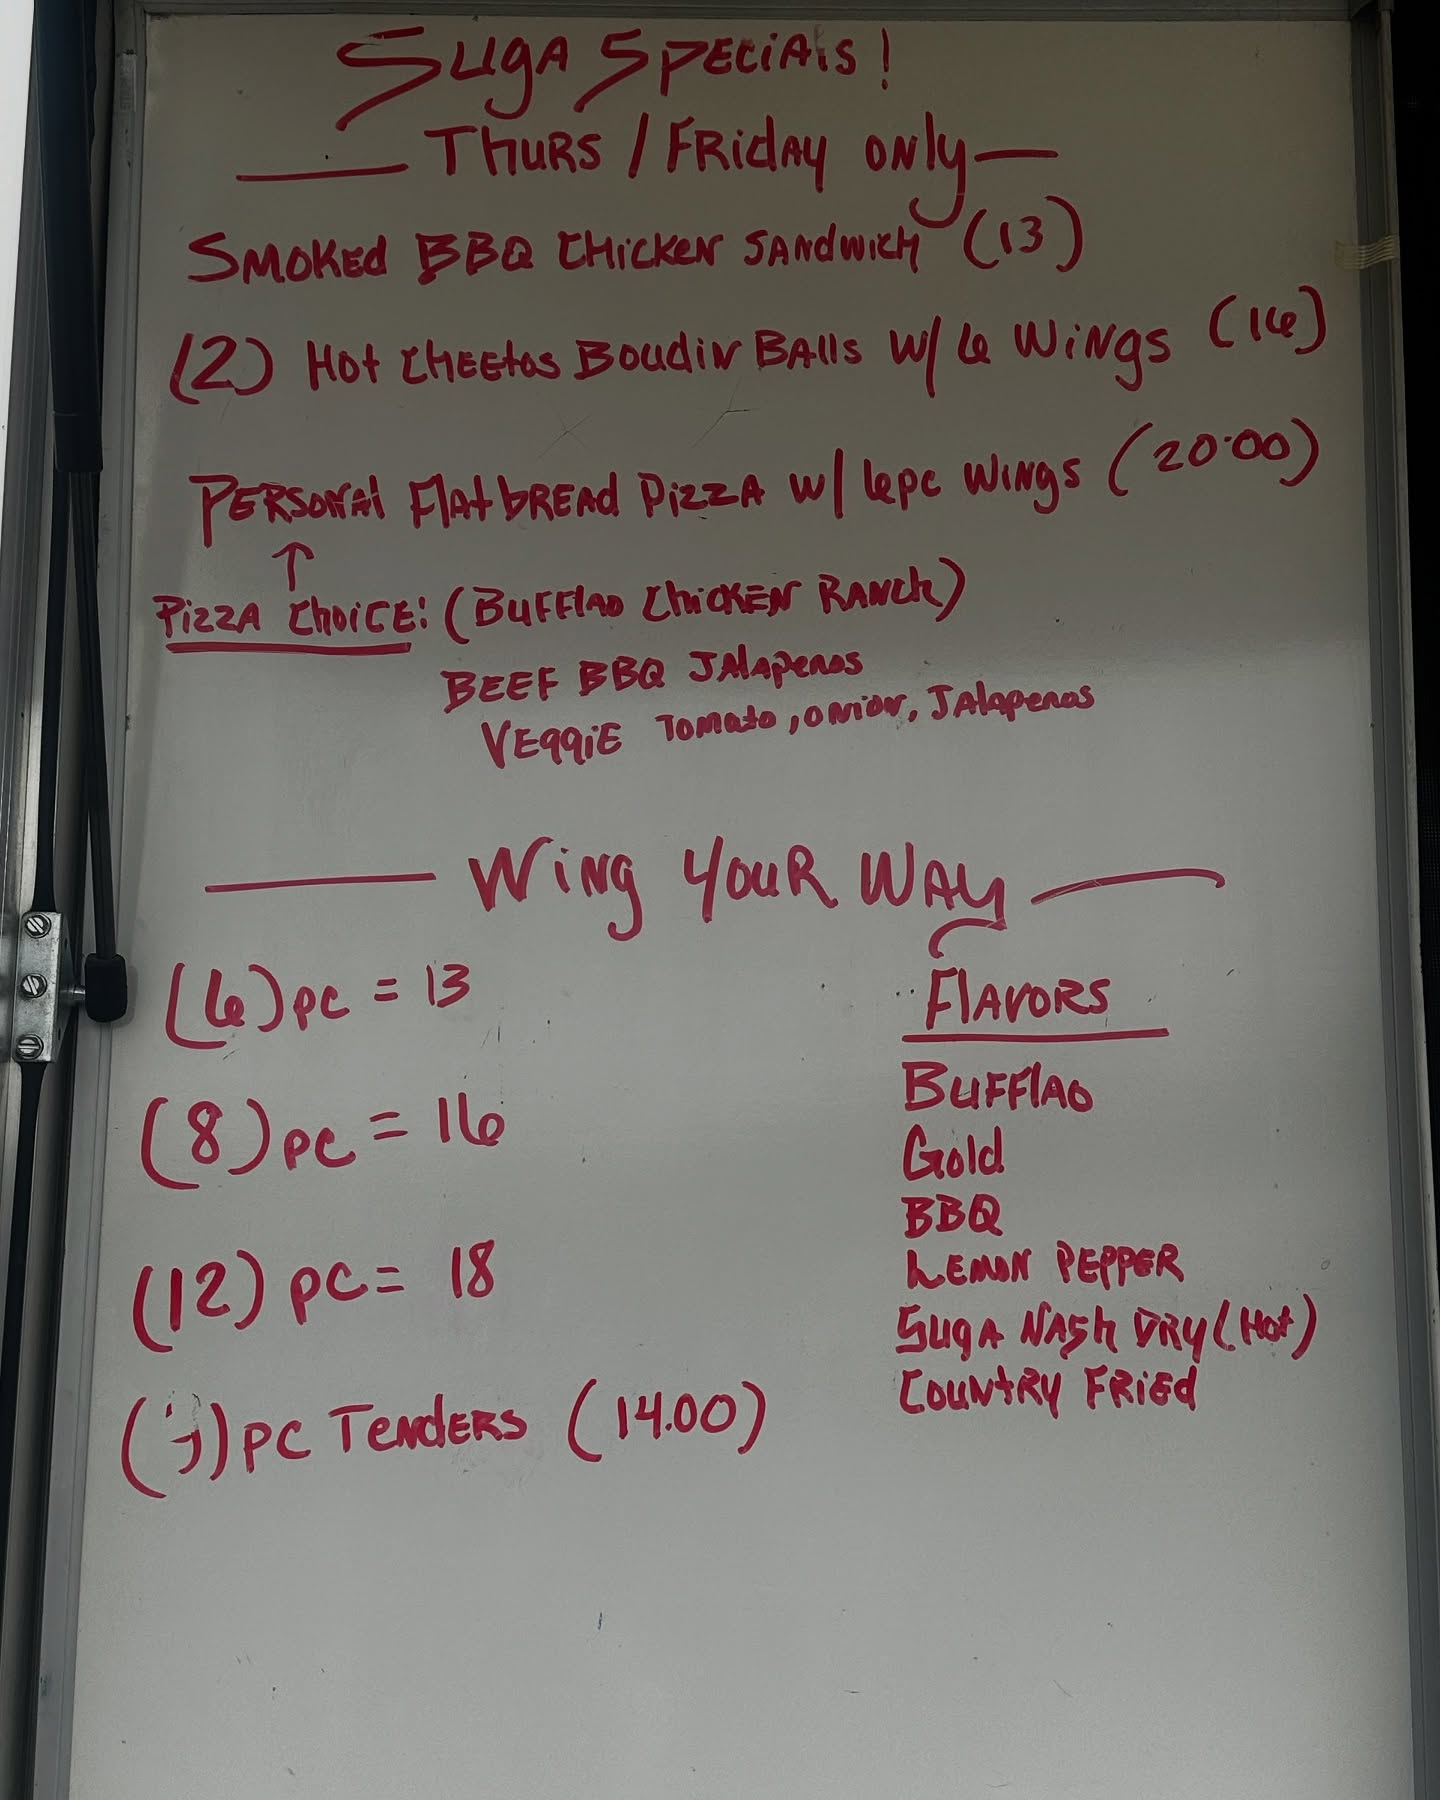 Suga Specials!
Thurs / Friday only
Smoked BBQ Chicken Sandwich (13)
(2) Hot Cheetos Boudin Balls w/ 6 Wings (16)
Personal Flatbread Pizza w/ 6pc Wings (20.00)
↑
Pizza Choice: (Bufflao Chicken Ranch)
Beef BBQ Jalapenos
Veggie Tomato, onion, Jalapenos
Wing Your Way
Flavors
(6) pc = 13
(8) pc = 16
(12) pc = 18
( ) pc Tenders (14.00)
Bufflao
Gold
BBQ
Lemon Pepper
Suga Nash Dry (Hot)
Country Fried